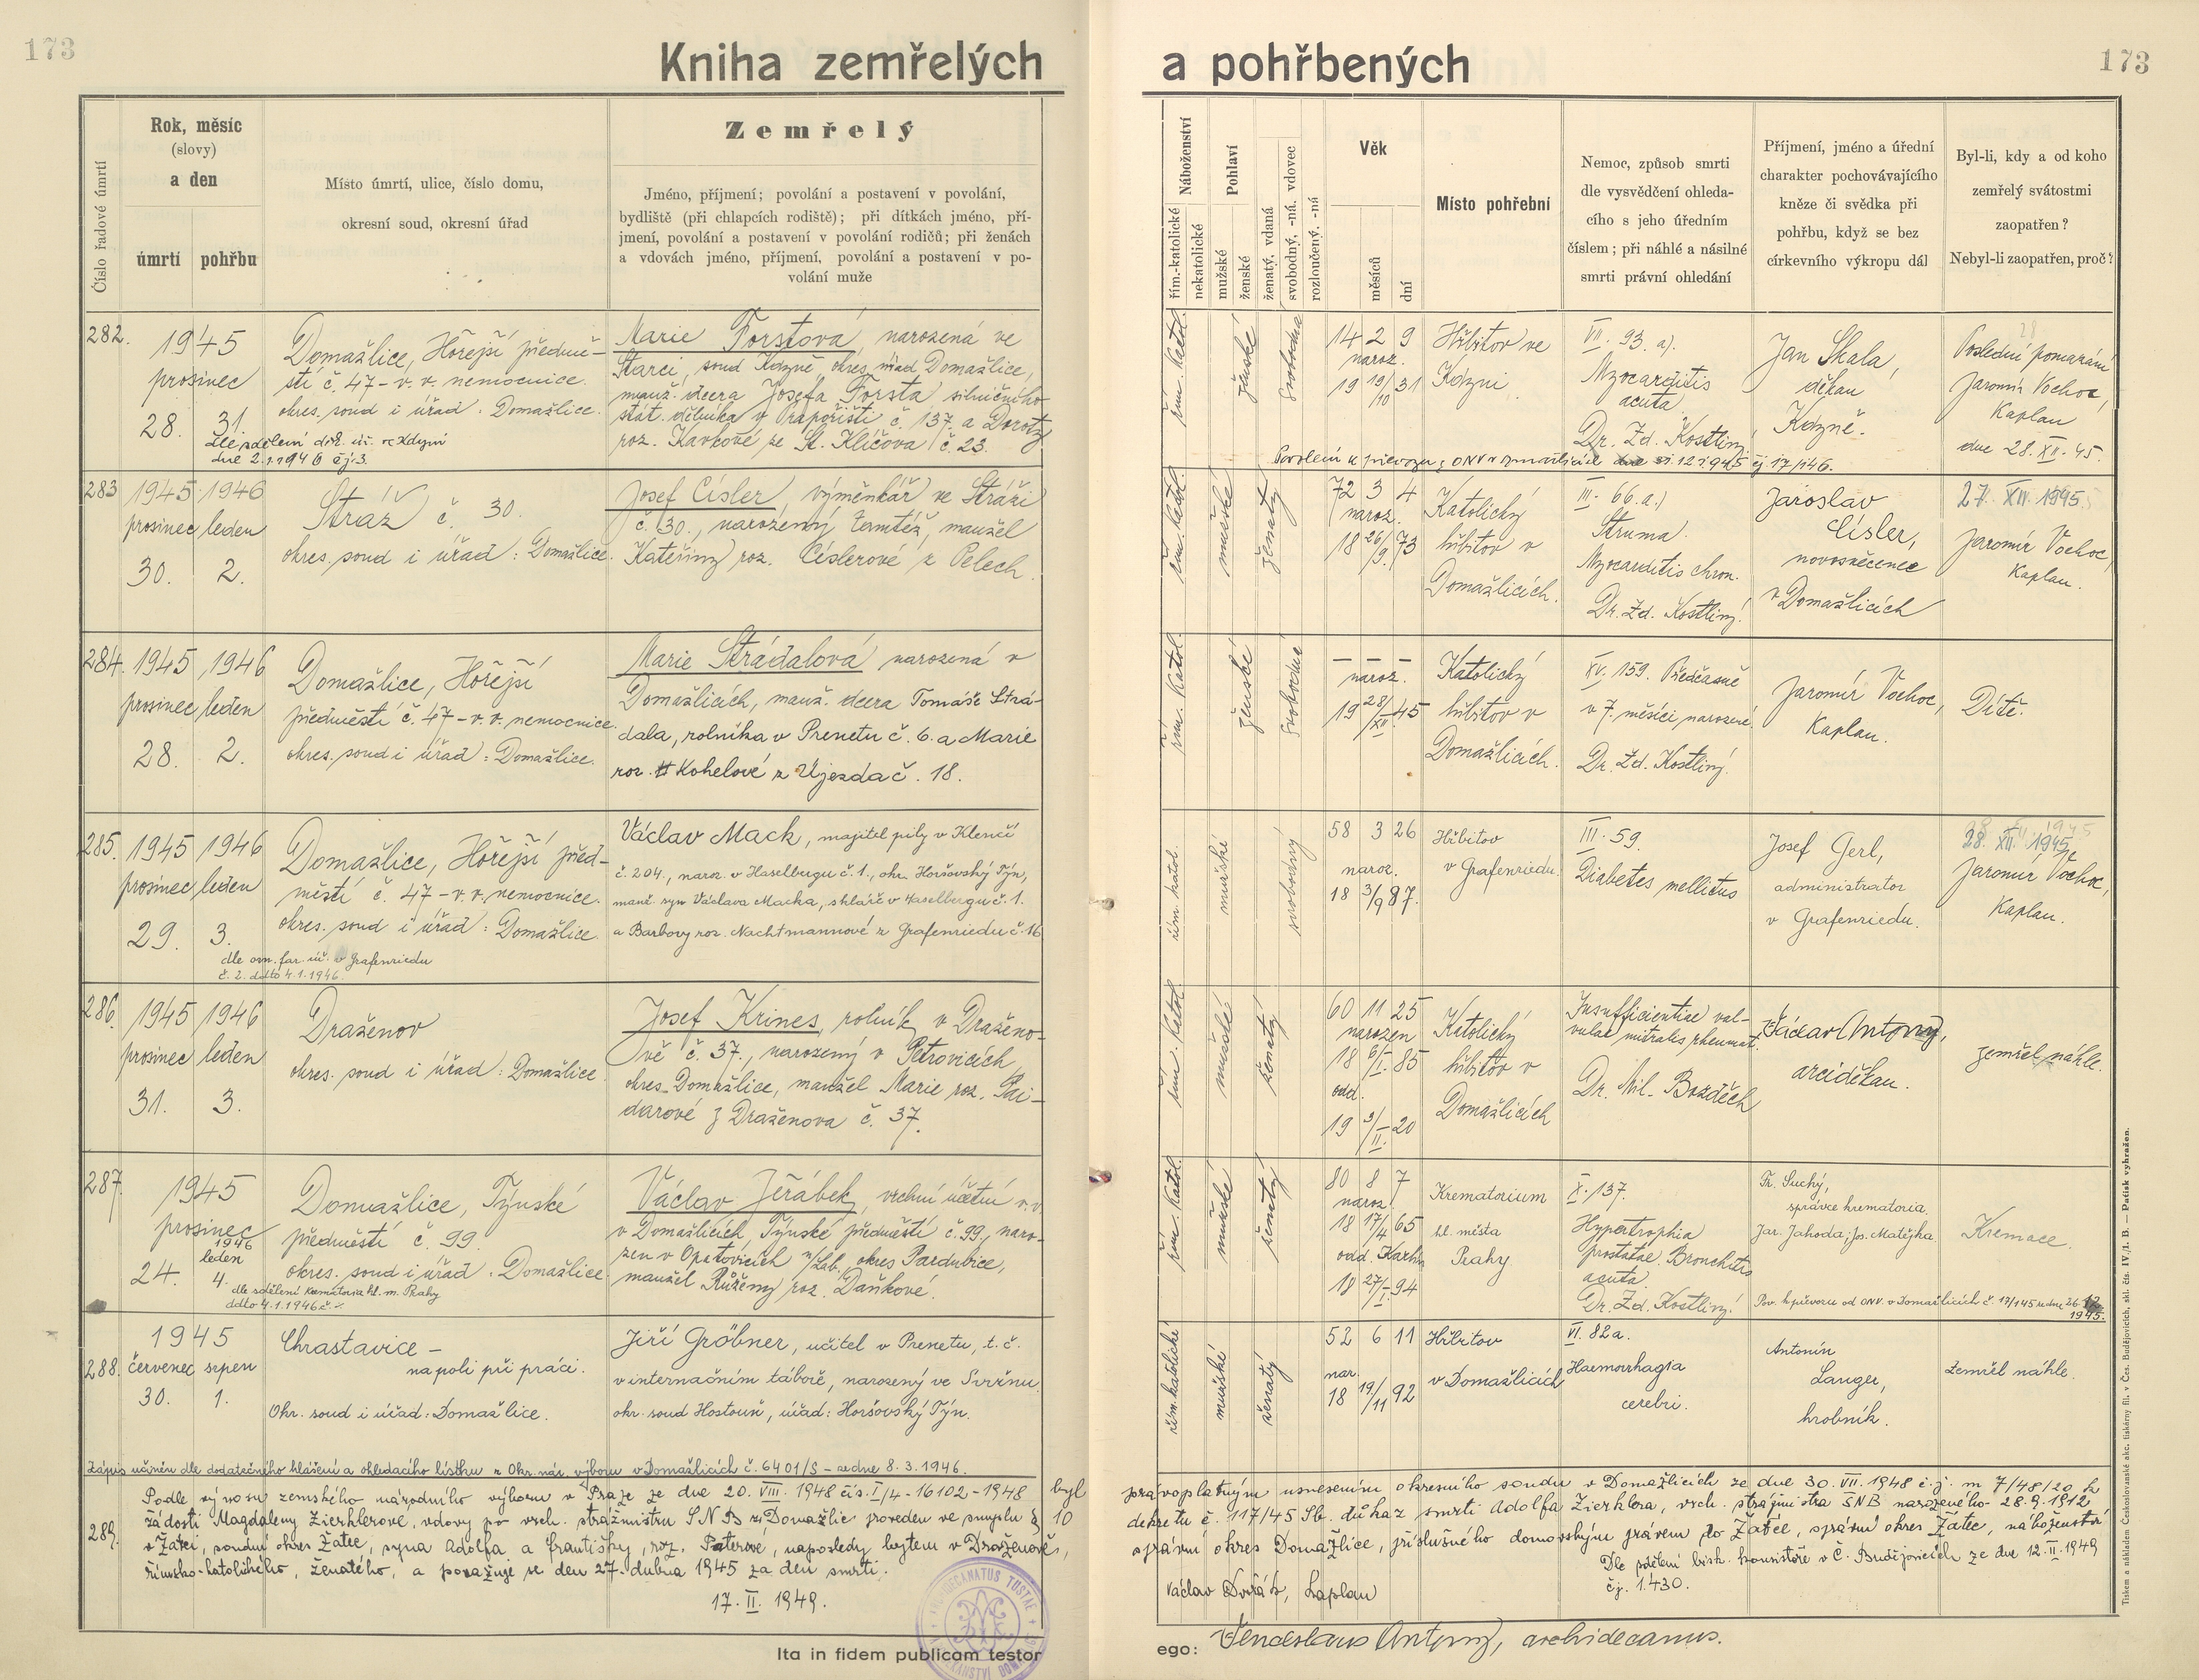 173
Kniha zemřelých
a pohřbených
173
Číslo řadové úmrtí
Rok, měsíc
(slovy)
a den
úmrtí
pohřbu
Místo úmrtí, ulice, číslo domu,
okresní soud, okresní úřad
Zemřelý
Jméno, příjmení; povolání a postavení v povolání,
bydliště (při chlapcích rodiště); při dítkách jméno, pří-
jmení, povolání a postavení v povolání rodičů; při ženách
a vdovách jméno, příjmení, povolání a postavení v po-
volání muže
Náboženství
řím.-katolické
nekatolické
Pohlaví
mužské
ženské
ženatý, vdaná
svobodný, -ná, vdovec
rozloučený, -ná
Věk
měsíců
dní
Místo pohřební
Nemoc, způsob smrti
dle vysvědčení ohleda-
cího s jeho úředním
číslem; při náhlé a násilné
smrti právní ohledání
Příjmení, jméno a úřední
charakter pochovávajícího
kněze či svědka při
pohřbu, když se bez
církevního výkropu dál
Byl-li, kdy a od koho
zemřelý svátostmi
zaopatřen?
Nebyl-li zaopatřen, proč?
282.
1945
prosinec
28. 31.
dne 2.1.1946 čj 3.
Domažlice, Hořejší předmě-
stí č. 47 - v. v. nemocnice.
okres. soud i úřad: Domažlice.
Marie Forstová, narozená ve
Starci, soud Kdyně, okres. úřad Domažlice,
manž. dcera Josefa Forsta silničního
stát. dělníka v Zahořišti č. 137. a Doroty
roz. Kavkové ze St. Klíčova č. 23.
řím. katol.
ženské
svobodná
14 2 9
naroz.
19 19/10 31
Hřbitov ve
Kdyni
VII. 93. a).
Myocarditis
acuta
Dr. Zd. Kostlivý
Jan Skala,
děkan
Kdyně.
Poslední pomazání
Jaromír Vochoc,
Kaplan
dne 28. XII. 45.
283
1945 1946
prosinec leden
30. 2.
Stráž č. 30.
okres. soud i úřad: Domažlice.
Josef Císler, výměnkář ve Stráži
č. 30., narozený tamtéž, manžel
Kateřiny roz. Císlerové z Pelech.
řím. katol.
mužské
ženatý
72 3 4
naroz.
18 26/9. 73
Katolický
hřbitov v
Domažlicích.
III. 66. a.)
Struma.
Myocarditis chron.
Dr. Zd. Kostlivý.
Jaroslav
Císler,
novosvěcenec
v Domažlicích
27. XII. 1945.
Jaromír Vochoc,
Kaplan.
284.
1945 1946
prosinec leden
28. 2.
Domažlice, Hořejší
předměstí č. 47 - v. v. nemocnice.
okres. soud i úřad: Domažlice.
Marie Strádalová narozená v
Domažlicích, manž. dcera Tomáše Strá-
dala, rolníka v Prenetu č. 6. a Marie
roz. Kohelové z Újezda č. 18.
řím. katol.
ženské
svobodná
— — —
naroz.
19 28/XII. 45
Katolický
hřbitov v
Domažlicích.
XV. 159. Předčasně
v 7. měsíci narozené.
Dr. Zd. Kostlivý.
Jaromír Vochoc,
Kaplan.
Dítě.
285.
1945 1946
prosinec leden
29. 3.
dle ozn. far. úř. v Grafenriedu
č. 2. ddto 4.1.1946.
Domažlice, Hořejší před-
městí č. 47 - v. v. nemocnice.
okres. soud i úřad: Domažlice.
Václav Mack, majitel pily v Klenčí
č. 204., naroz. v Haselbergu č. 1., okr. Horšovský Týn,
manž. syn Václava Macka, skláře v Haselbergu č. 1.
a Barbory roz. Nachtmannové z Grafenriedu č. 16
řím. katol.
mužské
svobodný
58 3 26
naroz.
18 3/9 87.
Hřbitov
v Grafenriedu.
III. 59.
Diabetes mellitus
Josef Gerl,
administrator
v Grafenriedu.
28. XII. 1945
Jaromír Vochoc,
Kaplan.
286.
1945 1946
prosinec leden
31. 3.
Draženov
okres. soud i úřad: Domažlice.
Josef Krines, rolník v Draženo-
vě č. 37., narozený v Petrovicích,
okres. Domažlice, manžel Marie roz. Pai-
darové z Draženova č. 37.
řím. katol.
mužské
ženatý
60 11 25
narozen
18 6/I. 85
odd.
19 9/II. 20
Katolický
hřbitov v
Domažlicích
Insufficientiae val-
vulae mitralis rheumat.
Dr. Mil. Bozděch
Václav Antony,
arciděkan.
zemřel náhle.
287.
1945
prosinec
1946
leden
24. 4.
dle sdělení Krematoria hl. m. Prahy
ddto 4.1.1946 č. -.
Domažlice, Týnské
předměstí č. 99.
okres. soud i úřad: Domažlice.
Václav Jeřábek, vrchní účetní v. v.
v Domažlicích, Týnské předměstí č. 99., naro-
zen v Opatovicích n/Lab., okres Pardubice,
manžel Růženy roz. Daňkové.
řím. katol.
mužské
ženatý
80 8 7
naroz.
18 17/4 65
18 27/I. 94
Krematorium
hl. města
Prahy
X. 137.
Hypertrophia
prostatae. Bronchitis
acuta.
Dr. Zd. Kostlivý.
Fr. Suchý,
správce krematoria.
Jar. Jahoda; Jos. Matějka.
Kremace.
Pov. k převozu od ONV. v Domažlicích č. 17/145 ze dne 26.12.
1945.
288.
1945
červenec srpen
30. 1.
Chrastavice -
na poli při práci.
Okr. soud i úřad: Domažlice.
Jiří Gröbner, učitel v Prenetu, t. č.
v internačním táboře, narozený ve Svržnu,
okr. soud Hostouň, úřad: Horšovský Týn.
řím. katolické
mužské
ženatý
52 6 11
nar.
18 19/11 92
Hřbitov
v Domažlicích
VI. 82a.
Haemorrhagia
cerebri.
Antonín
Langer,
hrobník.
Zemřel náhle.
Zápis učiněn dle dodatečného hlášení a ohledacího lístku z Okr. nár. výboru v Domažlicích č. 6401/S - ze dne 8. 3. 1946.
289.
Podle výnosu zemského národního výboru v Praze ze dne 20. VIII. 1948 čís. I/4 - 16102 - 1948 byl
pravoplatným usnesením okresního soudu v Domažlicích ze dne 30. VII. 1948 č.j. m 7/48/20 k
žádosti Magdaleny Zierhlerové, vdovy po vrch. strážmistru SNB z Domažlic proveden ve smyslu § 10
dekretu č. 117/45 Sb. důkaz smrti Adolfa Zierhlera, vrch. strážmistra SNB narozeného 28.9.1912
v Žatci, soudní okres Žatec, syna Adolfa a Františky, roz. Paterové, naposledy bytem v Draženově,
správní okres Domažlice, příslušného domovským právem do Žatce, správní okres Žatec, náboženství
římsko-katolického, ženatého, a považuje se den 27. dubna 1945 za den smrti.
Dle sdělení bisk. konsistoře v Č. Budějovicích ze dne 12. II. 1949
čj. 1.430.
17. II. 1949.
Václav Dvořák, kaplan
Ita in fidem publicam testor
ego: Venceslaus Antony, archidecanus.
Tiskem a nákladem Českoslovanské akc. tiskárny fil. v Čes. Budějovicích, skl. čís. IV./1. B. — Patisk vyhražen.